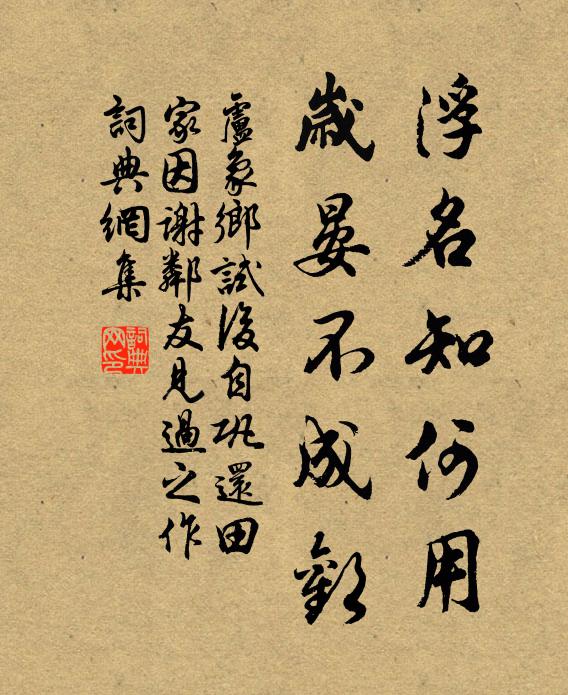 浮名知何用
歲晏不成歡
盧象鄉試後自鞏還田
家因謝鄰友見過之作
詞典網集
詞典
网印